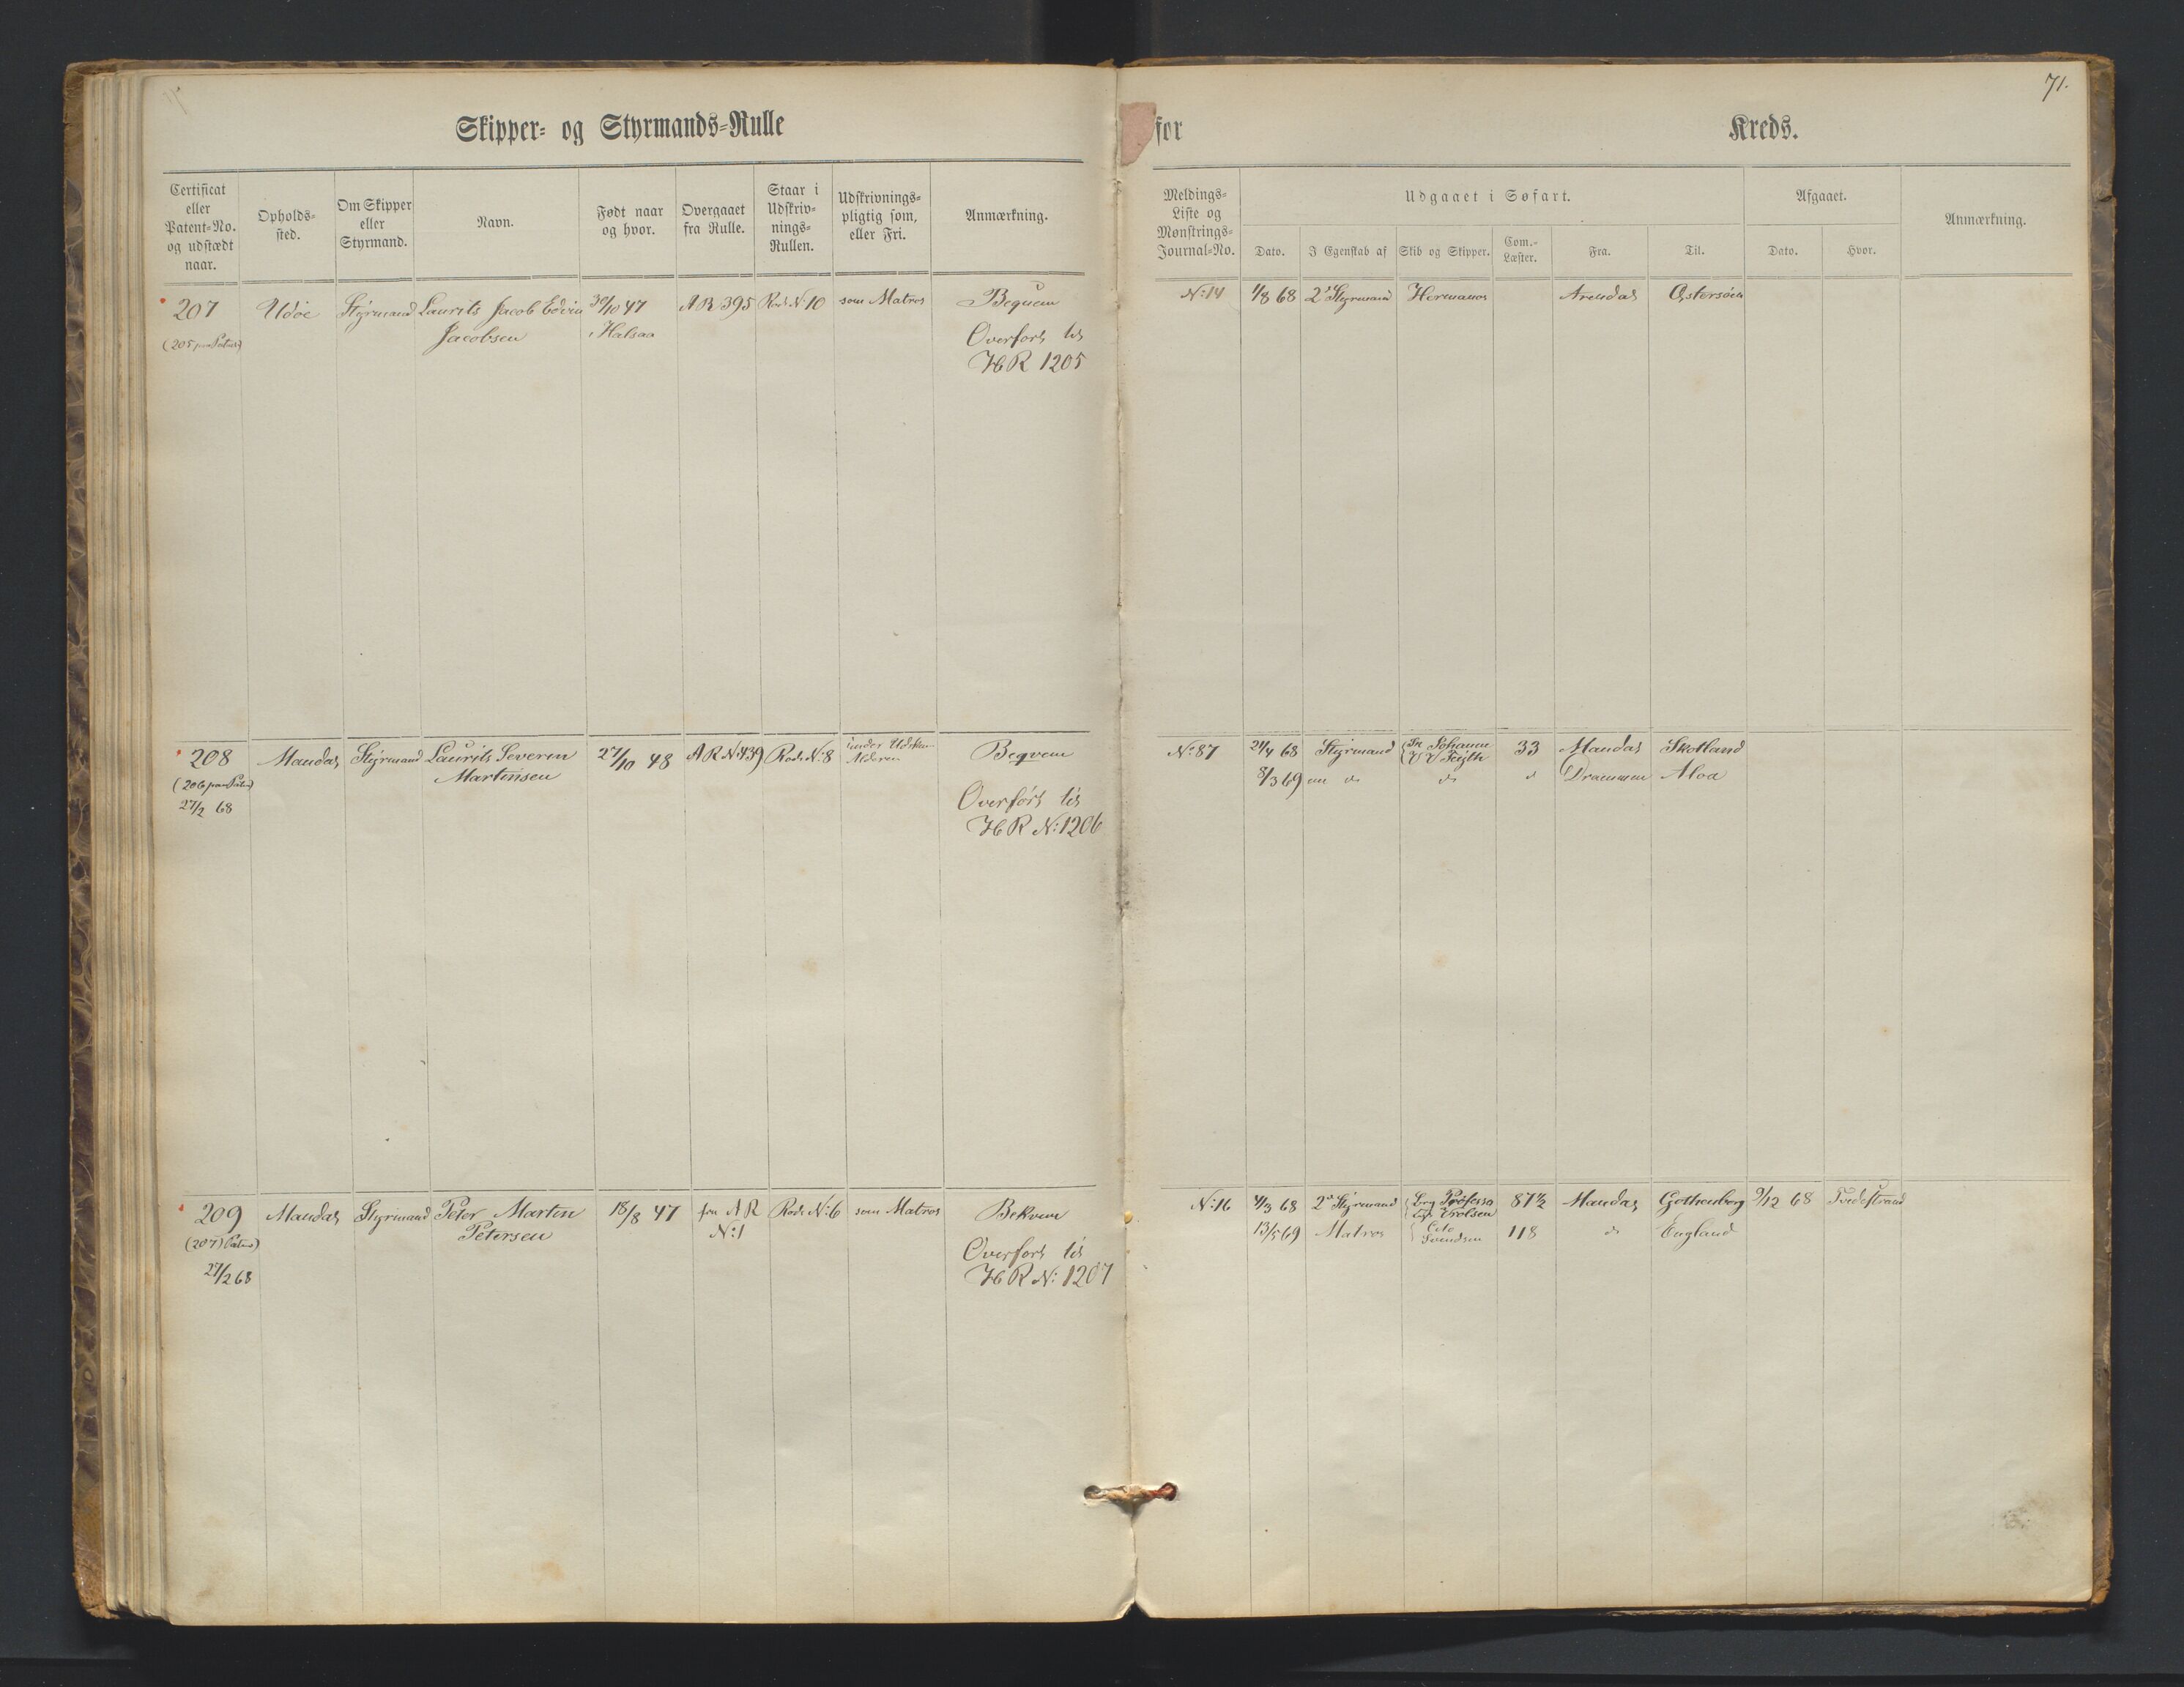 71.
Skipper- og Styrmands-Rulle
for
Kreds.
Certificat eller Patent-No. og udstædt naar.
Opholds-sted.
Om Skipper eller Styrmand.
Navn.
Født naar og hvor.
Overgaaet fra Rulle.
Staar i Udskriv-nings-Rullen.
Udskrivnings-pligtig som, eller Fri.
Anmærkning.
Meldings-Liste og Mønstrings-Journal-No.
Udgaaet i Søfart.
Dato.
I Egenskab af
Skib og Skipper.
Com.-Læster.
Fra.
Til.
Afgaaet.
Dato.
Hvor.
Anmærkning.
207 Udöe Styrmand Laurits Jacob Edvin 30/10 47 AR 395 Rode N: 10 som Matros Bequem
Jacobsen Halsaa
Overfört til
HR 1205
N: 14 1/8 68 2d Styrmand Hermanos Arendal Østersøen
208 Mandal Styrmand Laurits Severin 27/10 48 AR N: 439 Rode N: 8 under Alderen Beqvem
(206 paa Patent) Martinsen
27/2 68
Overført til
HR N: 1206
N: 87 24/4 68 Styrmand Johanne 33 Mandal Skotland
8/3 69 do do do Drammen Aloa
209 Mandal Styrmand Peter Martin 18/8 47 fra AR Rode N: 6 som Matros Bekvem
(207) Petersen N: 1
27/2 68
Overfört til
HR N: 1207
N: 16 4/3 68 2d Styrmand 87 1/2 Mandal Gothenborg 9/12 68 Tvedestrand
13/5 69 Matros Svendsen 118 do England